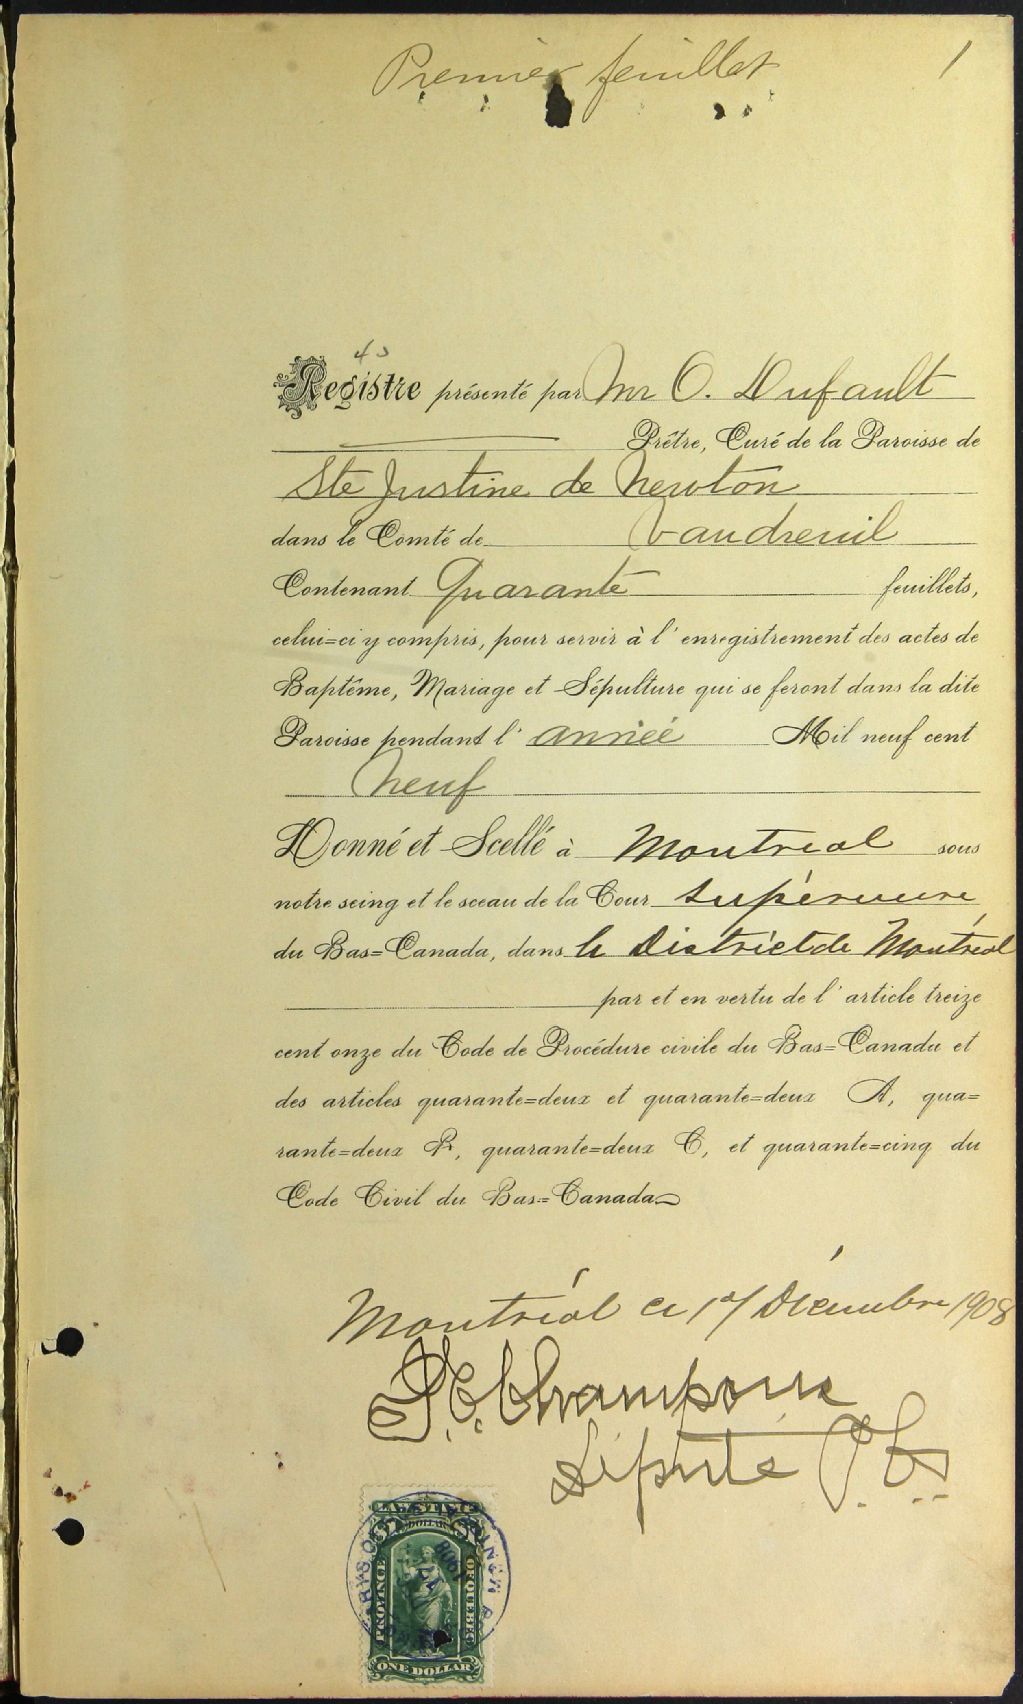 Premier feuillet 1
40
Registre présenté par Mr O. Dufault
Prêtre, Curé de la Paroisse de
Ste Justine de Newton
dans le Comté de Vaudreuil
Contenant Quarante feuillets,
celui=ci y compris, pour servir à l'enregistrement des actes de
Baptême, Mariage et Sépulture qui se feront dans la dite
Paroisse pendant l'année Mil neuf cent
Neuf
Donné et Scellé à Montreal sous
notre seing et le sceau de la Cour Supérieure
du Bas=Canada, dans le District de Montréal
par et en vertu de l'article treize
cent onze du Code de Procédure civile du Bas=Canada et
des articles quarante=deux et quarante=deux A, qua=
rante=deux B, quarante=deux C, et quarante=cinq du
Code Civil du Bas=Canada
Montréal ce 17 Décembre 1908
Champoux
Député P. C. S.
LAW STAMP
DOLLAR
PROVINCE
OF QUEBEC
1908
ONE DOLLAR